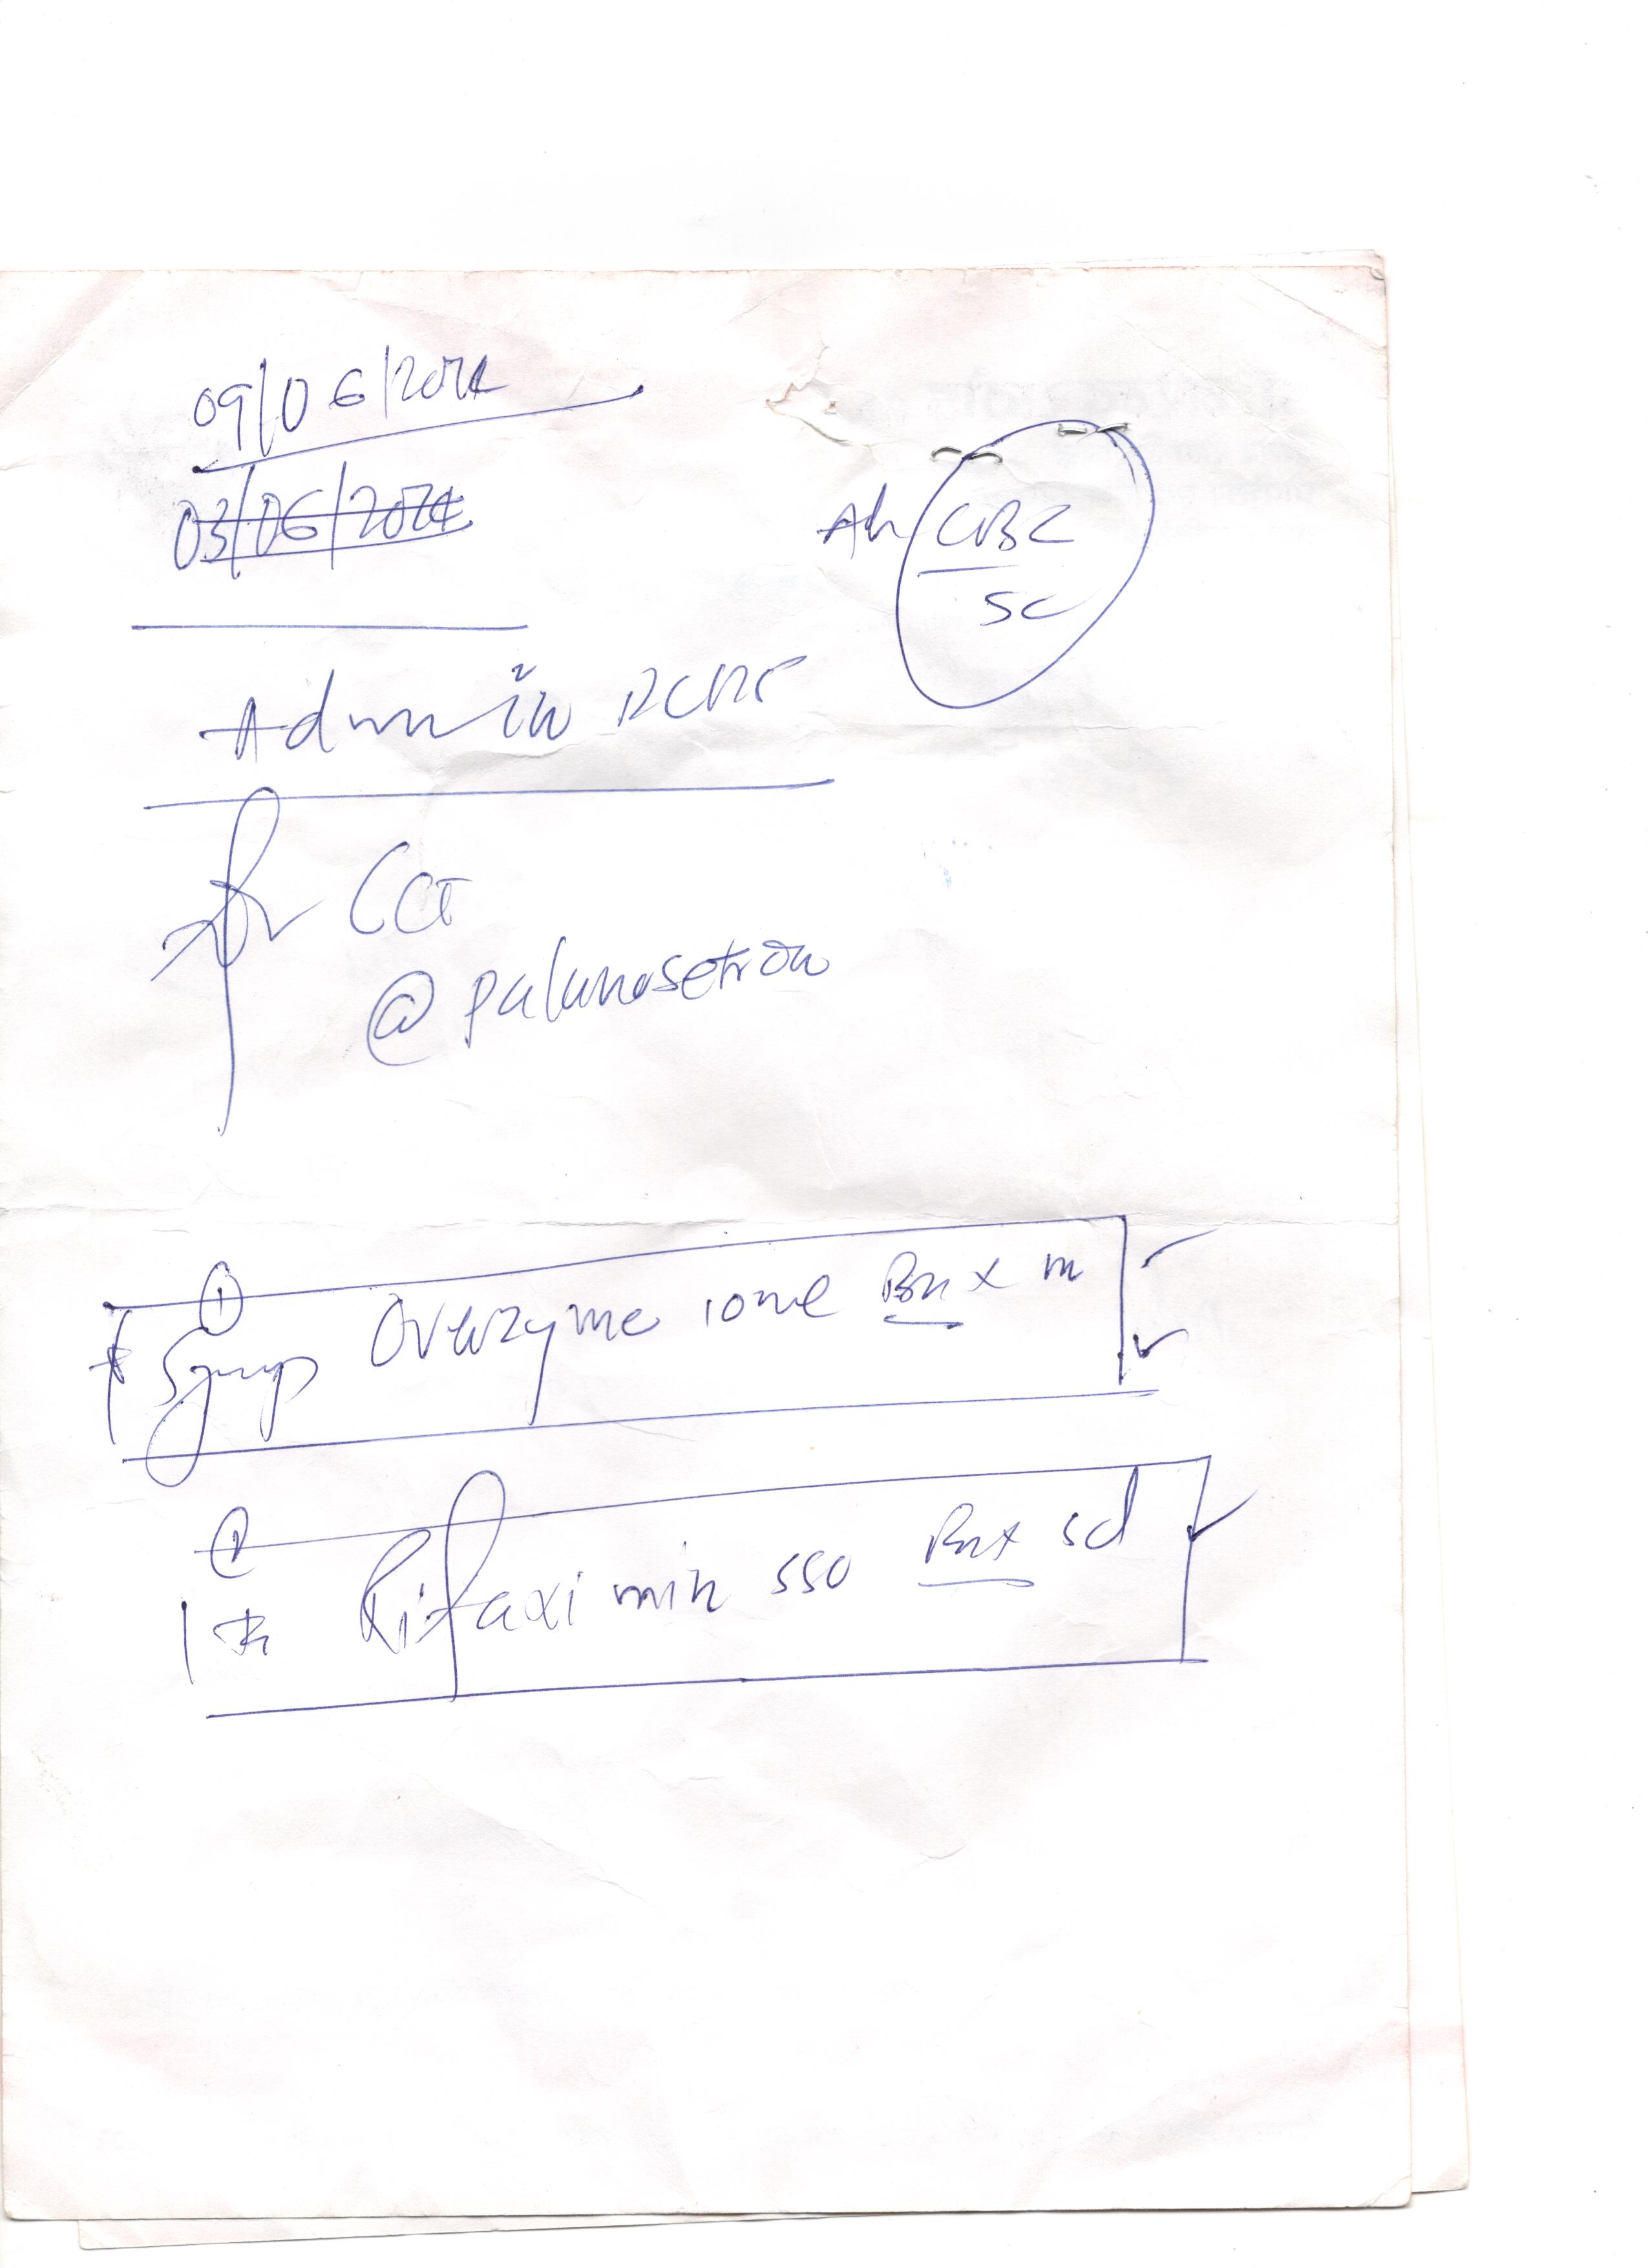 09/06/2024
03/06/2024
Ah CBC
SC
Admin
for CCT
@ palanosetron
①
* Syrup Overzyme 10ml Bn x m
②
Rifaximin 550 Bn x 5d